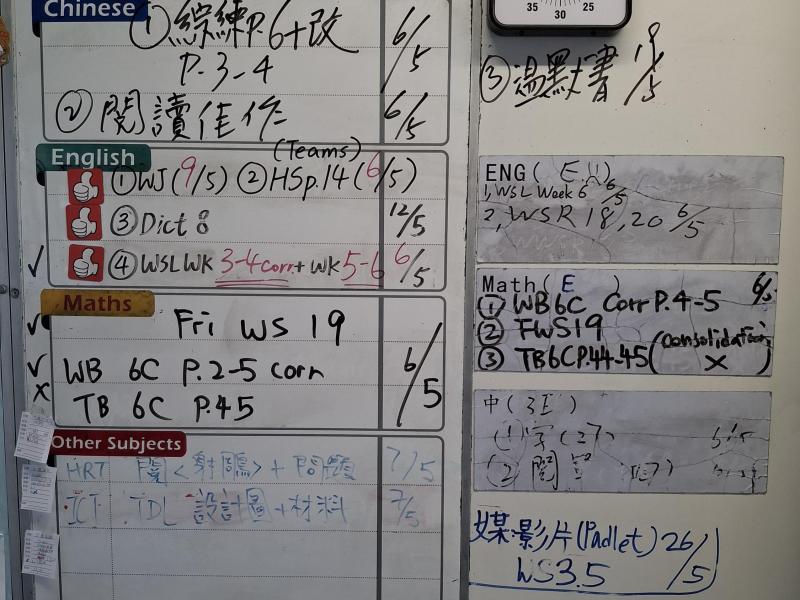 Chinese
① 綜練P.6+改
P.3-4 6/5
② 閱讀佳作 6/5
English
(Teams)
① WJ (9/5) ② HSp.14 (6/5)
③ Dict 8 12/5
④ WSLWK 3-4 corr + WK 5-6 6/5
Maths
Fri WS 19
WB 6C P.2-5 corr
TB 6C P.45
6/5
Other Subjects
HRT 7/5
ICT TDL 設計圖+材料 7/5
35 30 25
③ 溫默書 19/5
ENG (
1, WSL Week 6 6/5
2, WSR 18, 20 6/5
Math ( E ) 6/5
① WB6C Corr P.4-5
② FWS19
③ TB6CP.44-45 (consolidation X)
中 ( 3E )
(1) 字 (27)
(2) 閱
媒:影片(Padlet) 26/5
WS3.5